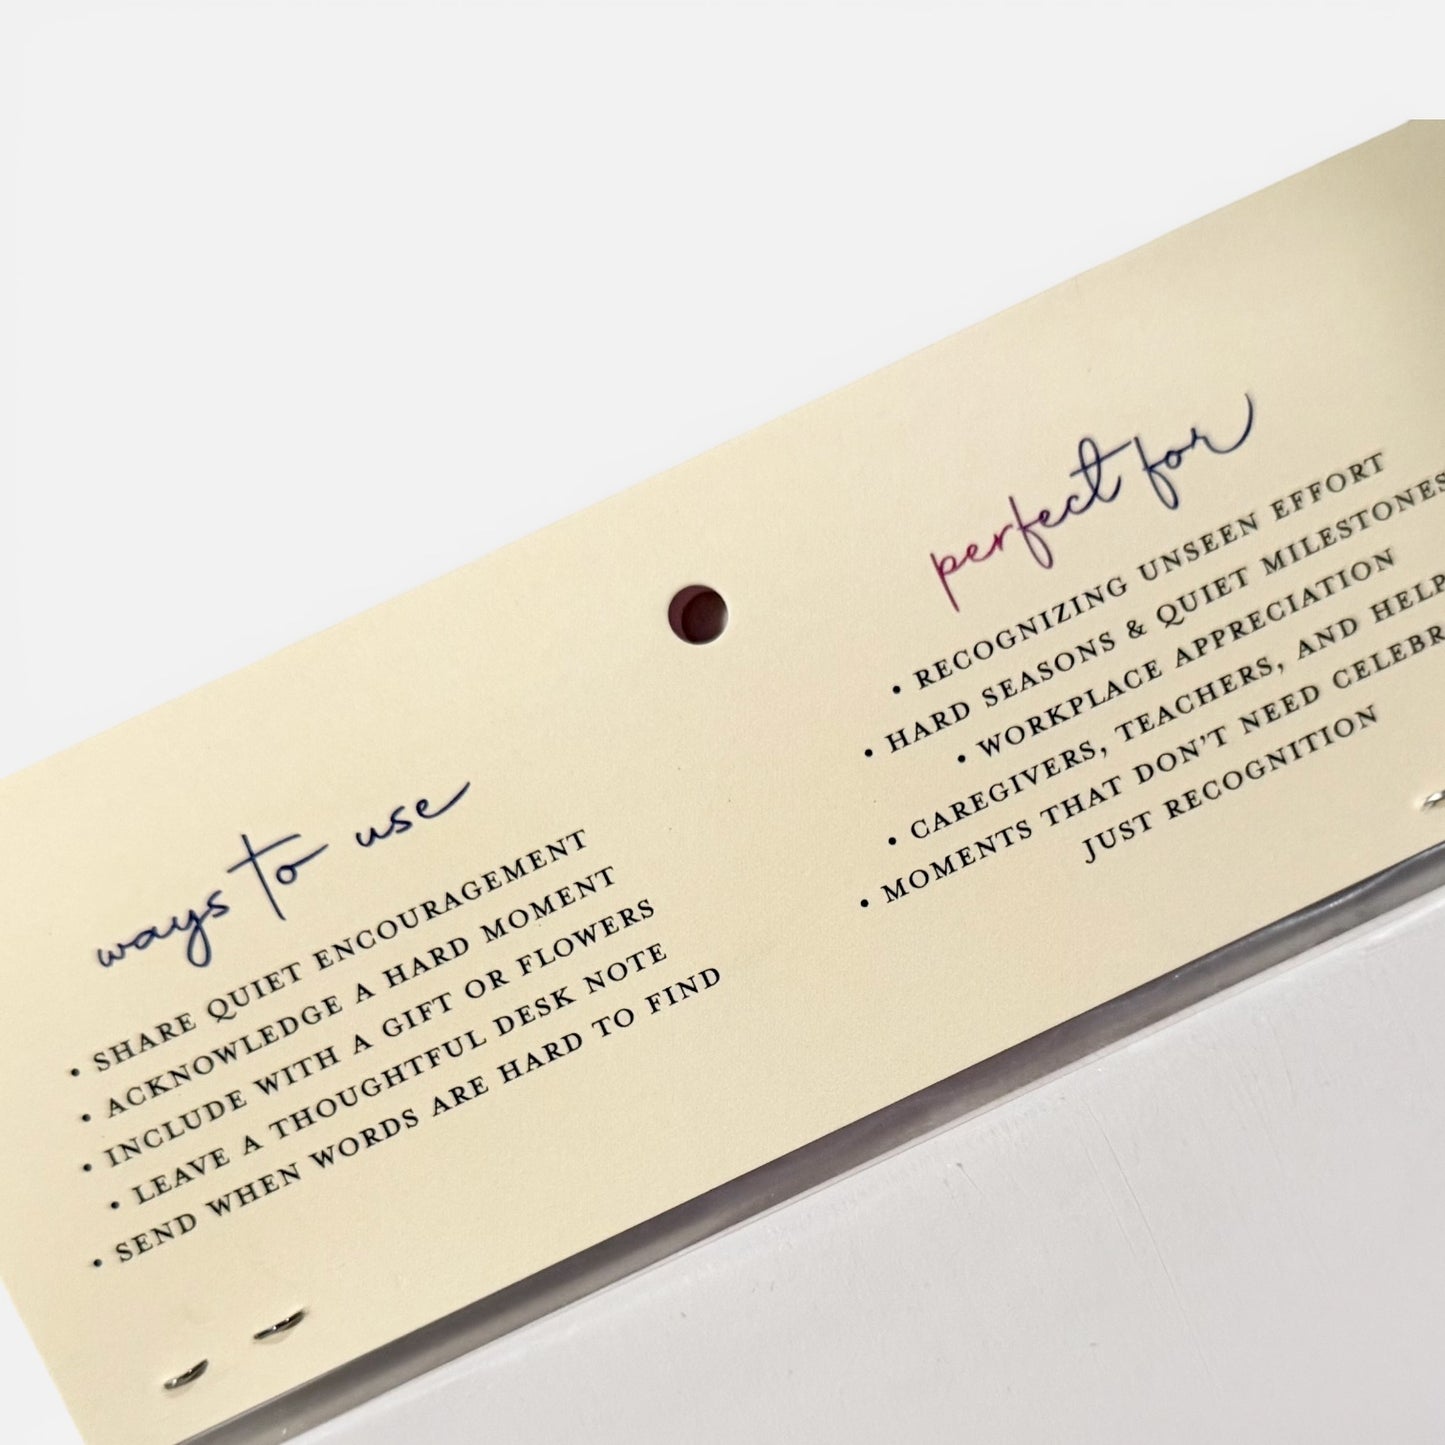 ways to use
• SHARE QUIET ENCOURAGEMENT
• ACKNOWLEDGE A HARD MOMENT
• INCLUDE WITH A GIFT OR FLOWERS
• LEAVE A THOUGHTFUL DESK NOTE
• SEND WHEN WORDS ARE HARD TO FIND
perfect for
• RECOGNIZING UNSEEN EFFORT
• HARD SEASONS & QUIET MILESTONES
• WORKPLACE APPRECIATION
• CAREGIVERS, TEACHERS, AND HELP
• MOMENTS THAT DON'T NEED CELEBR
JUST RECOGNITION